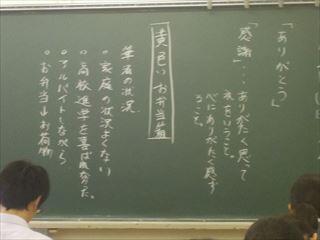 「ありがとう」
「感謝」…ありがたく思って
礼をいうこと。
心にありがたく感ず
ること。
黄色いお弁当箱
筆者の状況
家庭の状況よくない
高校進学を喜ばれなかった。
アルバイトしながら
お弁当もお荷物